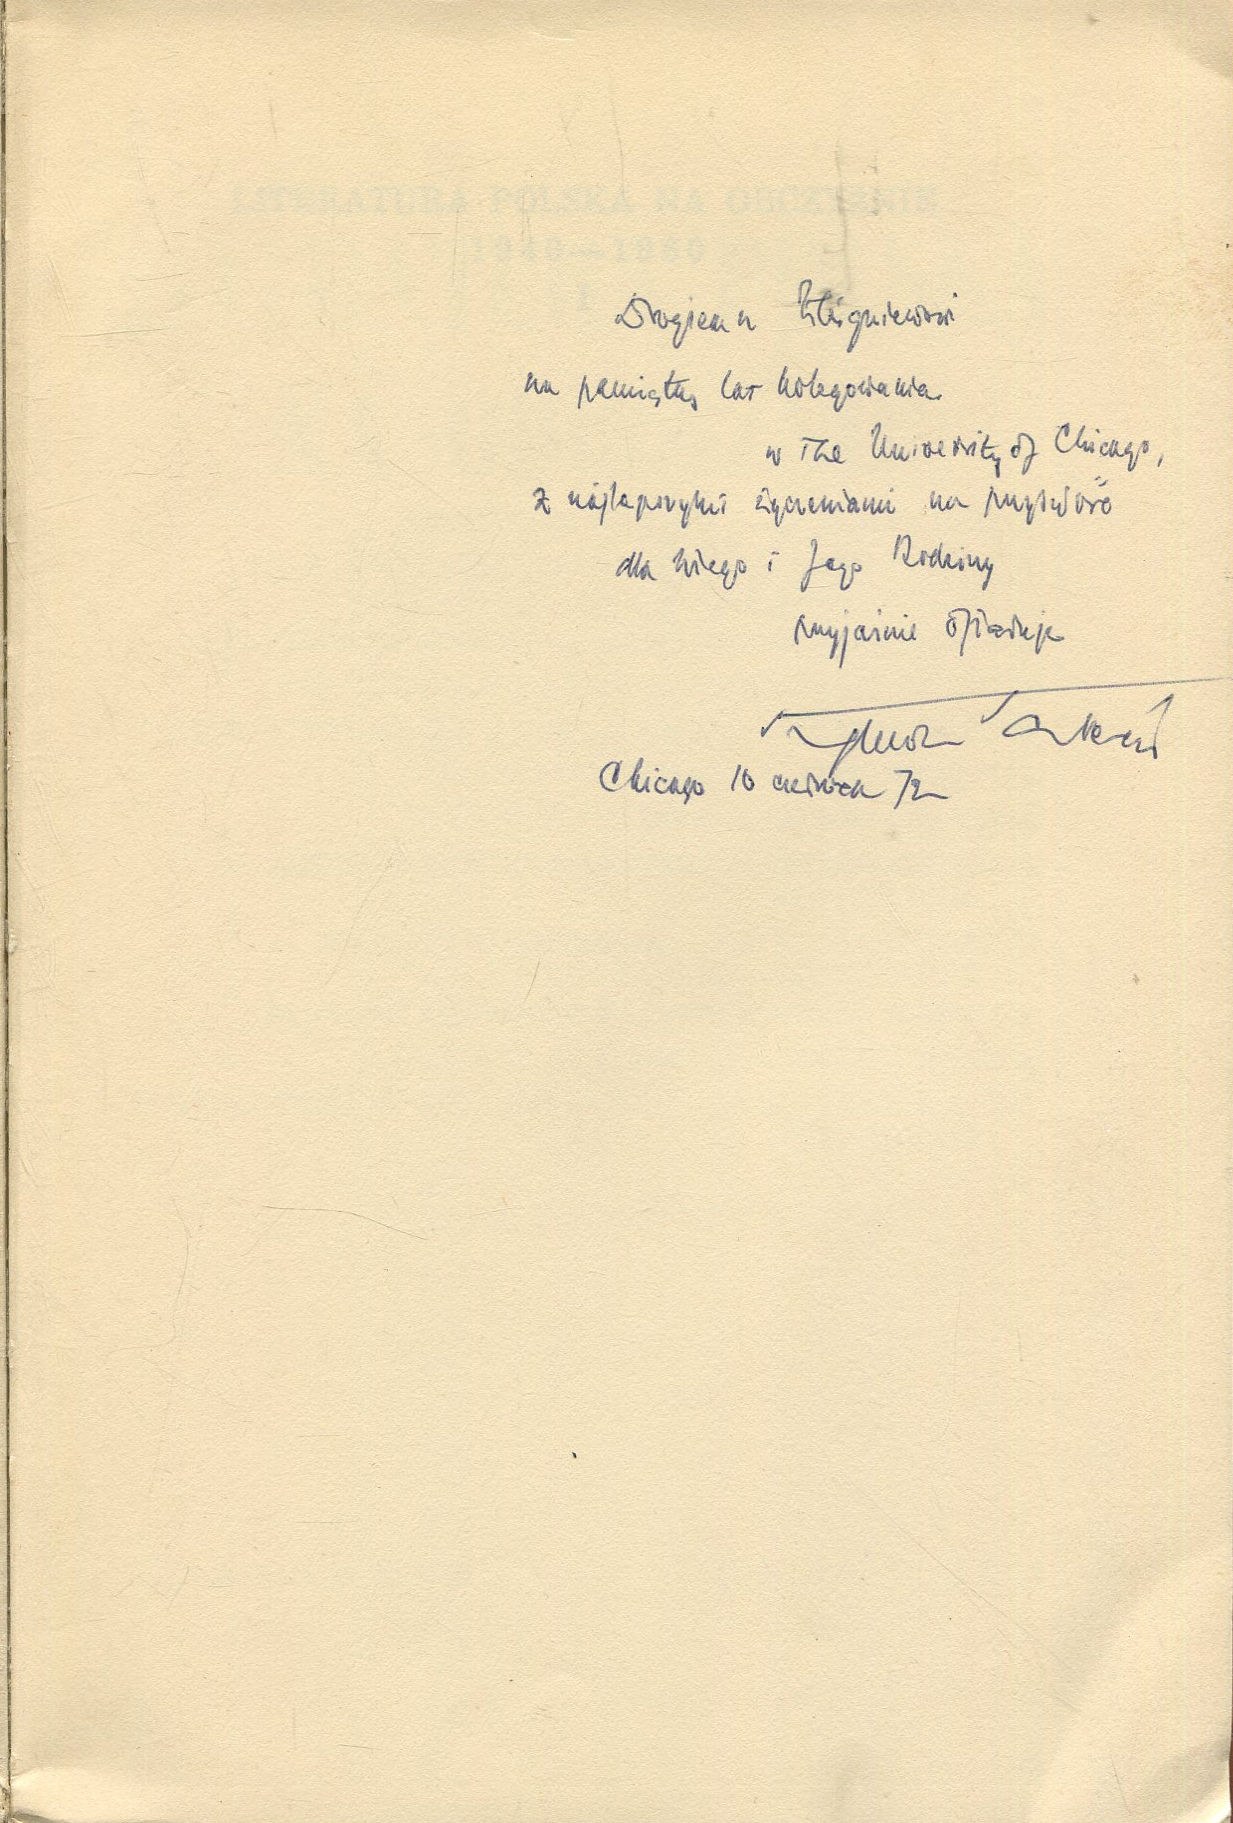 LITERATURA POLSKA NA OBCZYŹNIE
1940—1960
I
Drogiemu Zbigniewowi
na pamiątkę lat kolegowania
w The University of Chicago,
z najlepszymi życzeniami na przyszłość
dla Niego i Jego Rodziny
przyjaźnie ofiaruje
Tymon Terlecki
Chicago 10 czerwca 72